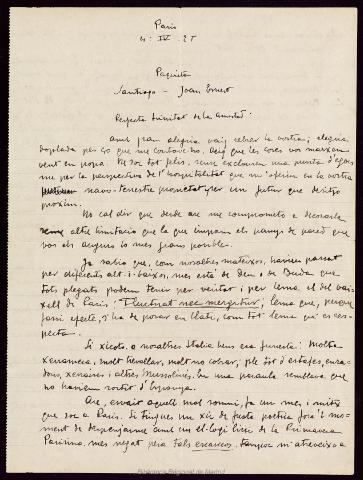 Paris
4 - IV - 25
Paquita
Santiago - Joan Ernest
Perfecta trinitat de la amistad:
Amb gran alegria vaig rebre la vostra; alegria,
doplada per ço que me contaveu. Veig que les coses vos marxan
vent en popa. Yo soc tot felis, sense excloure una punta d'egois
me per la perspectiva de l'hospitalitat que m'oferiu en la vostra
navo-terrestre promctat per un futur que desitjo
proxim.
No cal dir que desde are me comprometo a decorarla
sens altre limitacio que la que imposan els panys de pared que
vos els auguro lo mes grans posible.
Ja sabia que, com nosaltres mateixos, havieu passat
per diferents alt-i-baixos, mes este de Deu o de Buda que
tots plegats podem tenir per veritat i per lema el del vai
xell de Paris "Fluctuat nec mergitur", lema que, perque
fassi efecte, s'ha de posar en llatí, com tot lema qui es res-
pecta.
Si xicots, a nosaltres Italia bens era funesta: Molta
xerameca, molt trevallar, molt no cobrar, ple tot d'estafes,
i altres Mussolinis, en una paraula semblava que
no haviem sortit d'Espanya.
Are, envait aquell mal somni, fa un mes i mitx
que soc a Paris. Si tingues un xic de pasta poetica fora'l mo-
ment de despenjarme amb un elogi liric de la Primavera
Parisina, mes negat pera tals escarceos, tampoc m'atreveixo a
Biblioteca Regional de Madrid